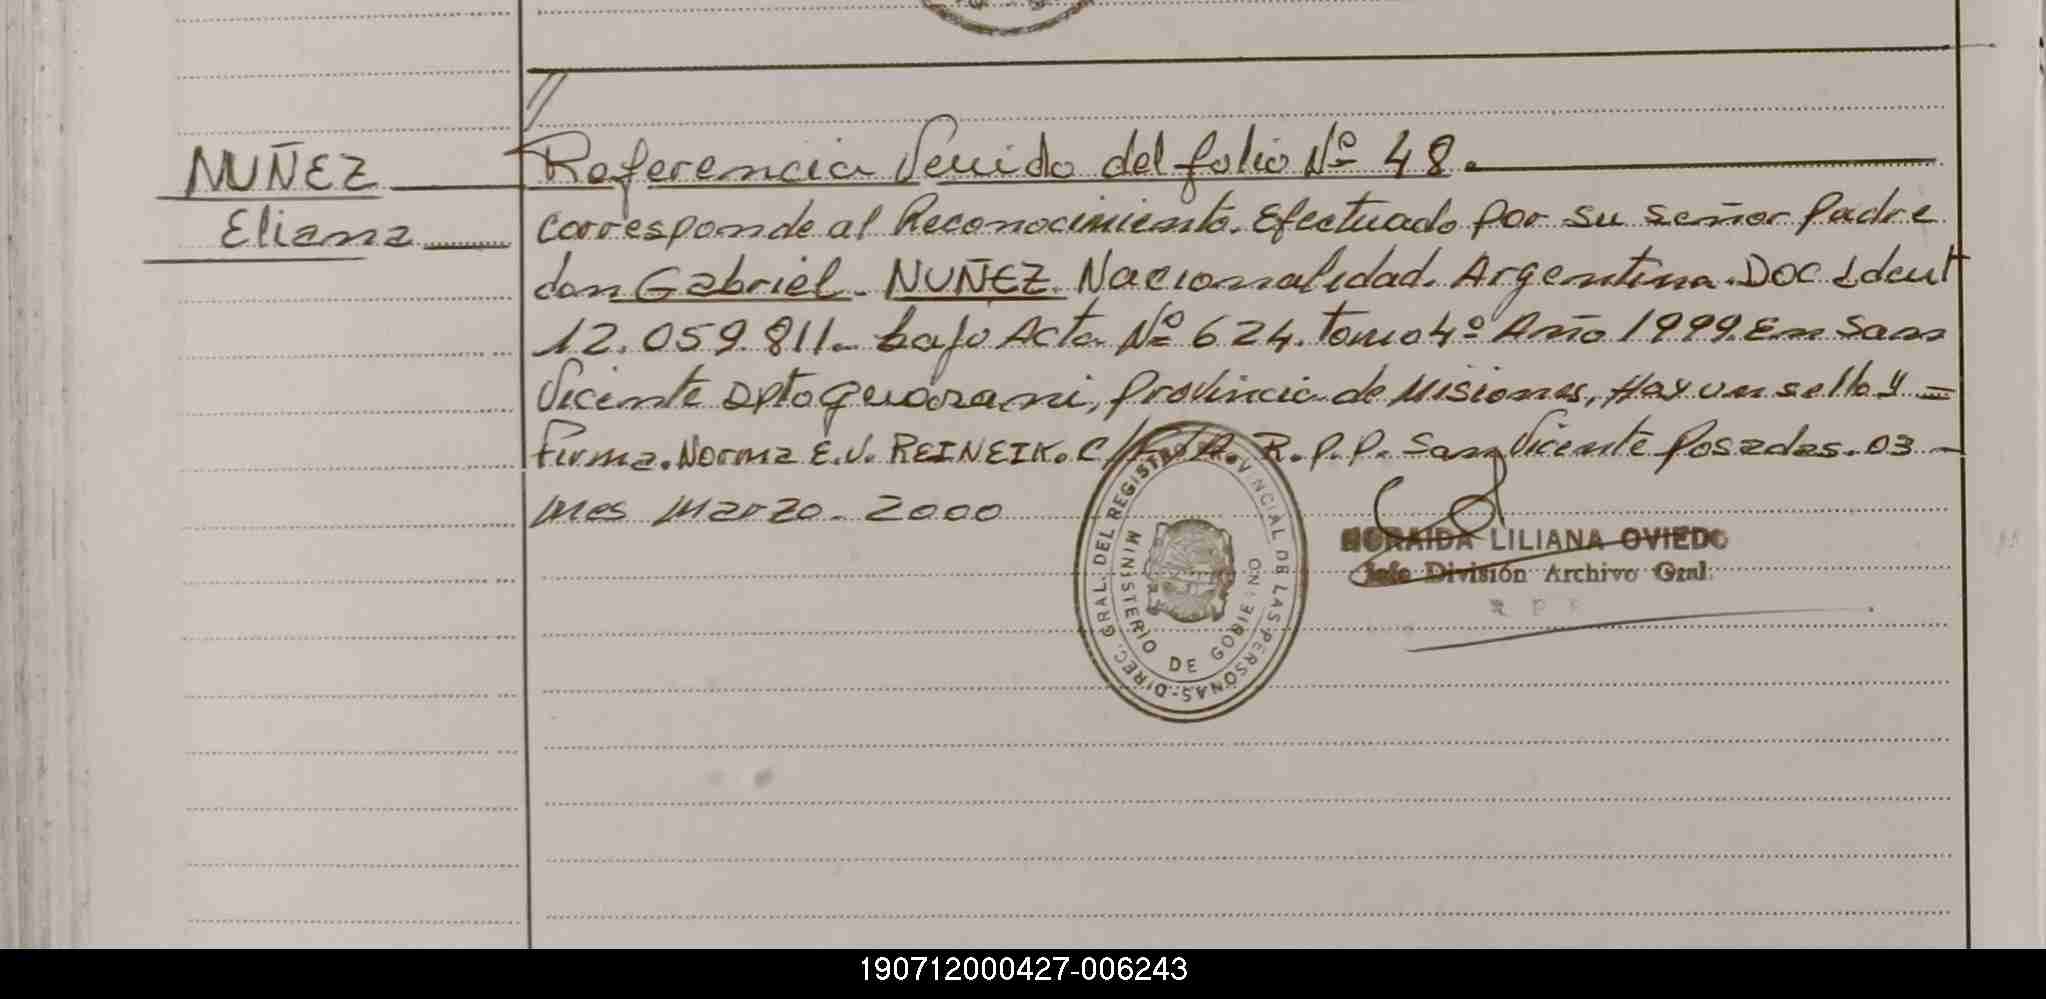 NUÑEZ
Eliana
Referencia Venido del folio Nº 48.
corresponde al Reconocimiento. Efectuado por su señor Padre
don Gabriel. NUÑEZ. Nacionalidad. Argentina. Doc Ident
12.059.811. bajo Acta Nº 624. tomo 4º Año 1999. En San
Vicente Dpto Guarani, provincia de Misiones, Hay un sello y =
Firma. Norma E.V. REINEIK. R.P.P. San Vicente Posadas. 03
mes Marzo. 2000
DIREC. GRAL. DEL REGISTRO PROVINCIAL DE LAS PERSONAS
MINISTERIO DE GOBIERNO
LILIANA OVIEDO
Jefe División Archivo Gral.
190712000427-006243